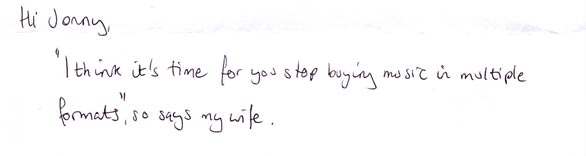 Hi Jonny,
"I think it's time for you stop buying music in multiple
formats", so says my wife.